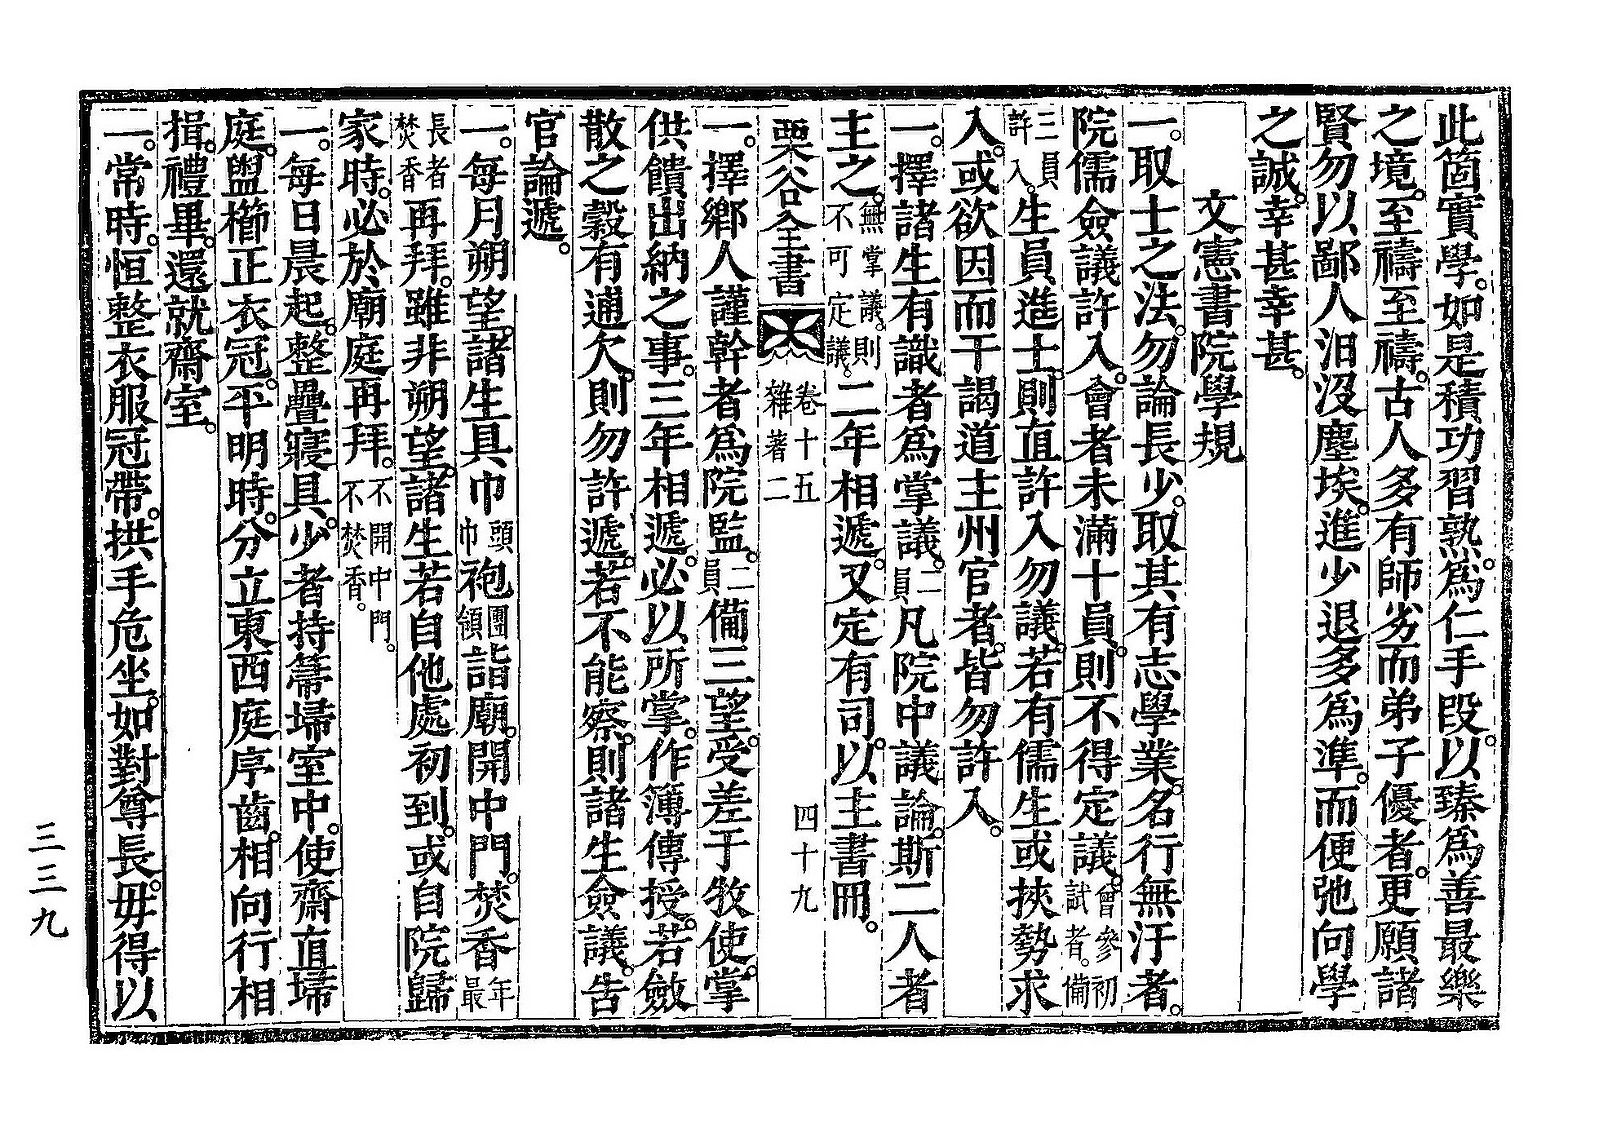 此箇實學。如是積功習熟。爲仁手段。以臻爲善最樂
之境。至禱至禱。古人多有師劣而弟子優者。更願諸
賢勿以鄙人汨沒塵埃。進少退多爲準。而便弛向學
之誠。幸甚幸甚。
文憲書院學規
一。取士之法。勿論長少。取其有志學業。名行無汙者。
院儒僉議許入。會者未滿十員。則不得定議。曾參初試者。備
三員許入。生員進士。則直許入勿議。若有儒生或挾勢求
入。或欲因而干謁道主州官者。皆勿許入。
一。擇諸生有識者爲掌議。二員凡院中議論。斯二人者
主之。無掌議。則不可定議。二年相遞。又定有司。以主書冊。
栗谷全書 卷十五 雜著二 四十九
一。擇鄉人謹幹者爲院監。二員備三望。受差于牧使。掌
供饋出納之事。三年相遞。必以所掌。作簿傳授。若斂
散之穀有逋欠。則勿許遞。若不能察。則諸生僉議。告
官論遞。
一。每月朔望。諸生具巾頭巾袍團領詣廟。開中門。焚香年最
長者焚香再拜。雖非朔望。諸生若自他處初到。或自院歸
家時。必於廟庭再拜。不開中門。不焚香。
一。每日晨起。整疊寢具。少者持箒埽室中。使齋直埽
庭。盥櫛正衣冠。平明時。分立東西庭序齒。相向行相
揖。禮畢。還就齋室。
一。常時。恒整衣服冠帶。拱手危坐。如對尊長。毋得以
三三九